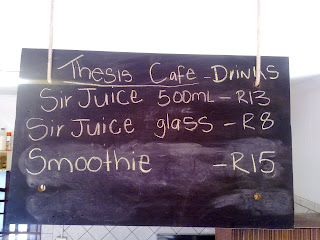 Thesis Cafe - Drinks
Sir Juice 500mL - R13
Sir Juice glass - R8
Smoothie - R15